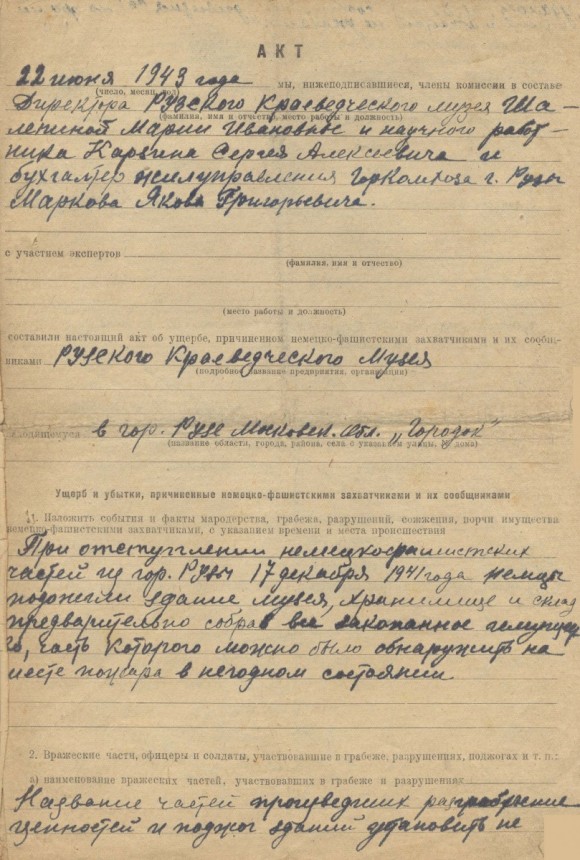 АКТ
22 июня 1943 года мы, нижеподписавшиеся, члены комиссии в составе
(число, месяц, год)
Директора Рузского Краеведческого музея Ша-
(фамилия, имя и отчество, место работы и должность)
лениной Марии Ивановны и научного работ-
ника Карзина Сергея Алексеевича и
бухгалтер жилуправления Горкомхоза г. Рузы
Маркова Якова Григорьевича.
с участием экспертов
(фамилия, имя и отчество)
(место работы и должность)
составили настоящий акт об ущербе, причиненном немецко-фашистскими захватчиками и их сообщ-
никами Рузского Краеведческого Музея
(подробное название предприятия, организации)
находящемуся в гор. Рузе Московск. обл. „Городок"
(название области, города, района, села с указанием улицы, № дома)
Ущерб и убытки, причиненные немецко-фашистскими захватчиками и их сообщниками
1. Изложить события и факты мародерства, грабежа, разрушений, сожжения, порчи имущества
немецко-фашистскими захватчиками, с указанием времени и места происшествия
При отступлении немецкофашистских
частей из гор. Рузы 17 декабря 1941 года немцы
подожгли здание музея, хранилище и склад
предварительно собрав все закопанное
го, часть которого можно было обнаружить на
месте пожара в негодном состоянии
2. Вражеские части, офицеры и солдаты, участвовавшие в грабеже, разрушениях, поджогах и т. п.:
а) наименование вражеских частей, участвовавших в грабеже и разрушениях
Название частей производших разграбление
ценностей и поджог зданий установить не